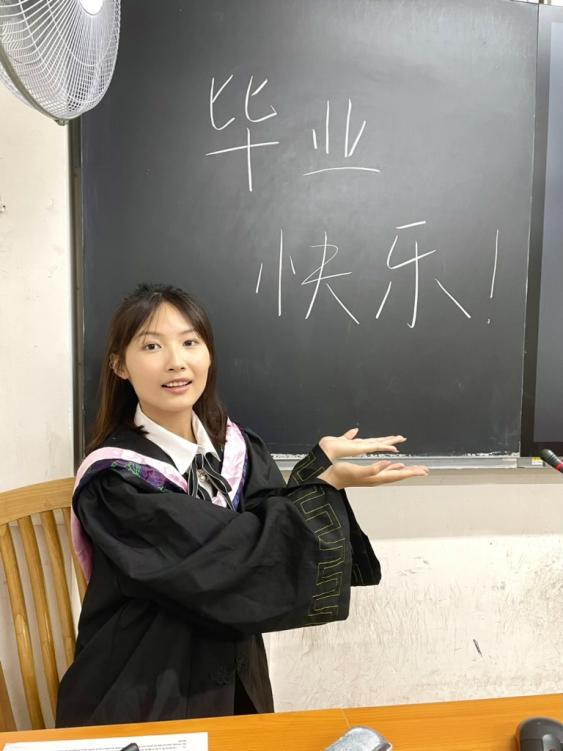 毕业
快乐！